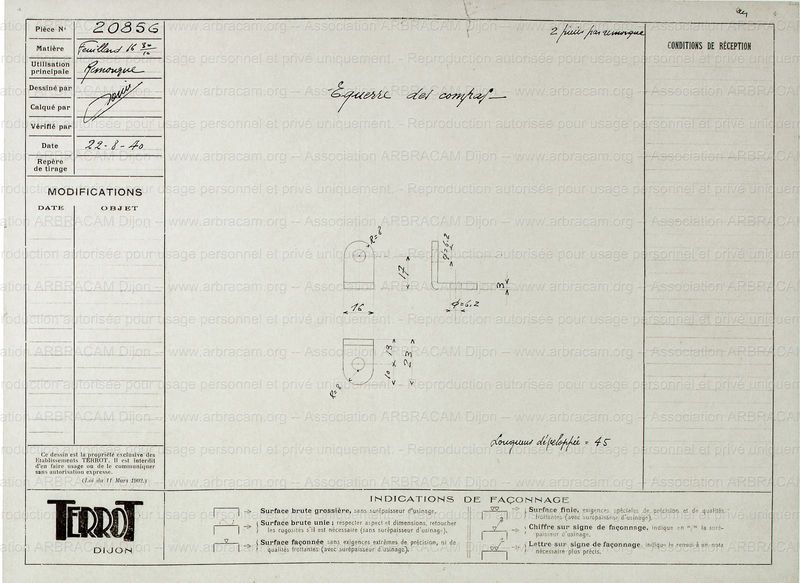 Pièce N° 20856
2 pièces par remorque
Matière Feuillard 16 30/10
Utilisation principale Remorque
Dessiné par
Calqué par
Vérifié par
Date 22-8-40
Repère de tirage
CONDITIONS DE RÉCEPTION
Equerre des compas
MODIFICATIONS
DATE OBJET
R=8
φ=6,2
17
3
16
φ=6,2
10 13
23
R=8
Longueur développée = 45
Ce dessin est la propriété exclusive des
Etablissements TERROT. Il est interdit
d'en faire usage ou de le communiquer
sans autorisation expresse.
(Loi du 11 Mars 1902.)
TERROT
DIJON
INDICATIONS DE FAÇONNAGE
Surface brute grossière, sans surépaisseur d'usinage.
Surface brute unie; respecter aspect et dimensions, retoucher
les rugosités s'il est nécessaire (sans surépaisseur d'usinage).
Surface façonnée sans exigences extrêmes de précision, ni de
qualités frottantes (avec surépaisseur d'usinage).
Surface finie, exigences spéciales de précision et de qualités
frottantes (avec surépaisseur d'usinage).
Chiffre sur signe de façonnage, indique en m/m la surépaisseur d'usinage.
Lettre sur signe de façonnage, indique le renvoi à une note
nécessaire plus précis.
www.arbracam.org – Association ARBRACAM Dijon
Reproduction autorisée pour usage personnel et privé uniquement.